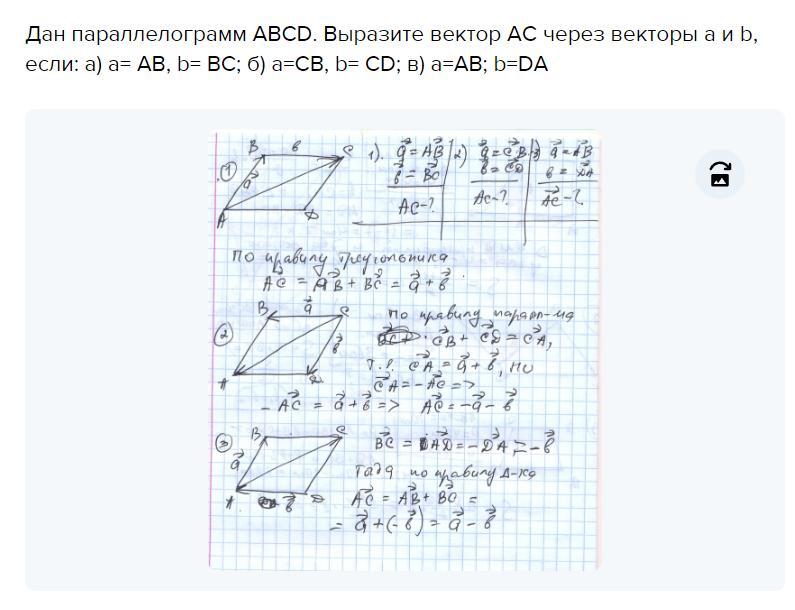 Дан параллелограмм ABCD. Выразите вектор AC через векторы a и b,
если: а) a= AB, b= BC; б) a=CB, b= CD; в) a=AB; b=DA
B в C 1). a⃗ = AB⃗ 2) a⃗ = CB⃗ 3) a⃗ = AB⃗
① a⃗ в⃗ = BC⃗ в = CD⃗ в = DA⃗
A D AC-? AC-? AC⃗-?
По правилу треугольника
AC⃗ = AB⃗ + BC⃗ = a⃗ + в⃗
B a⃗ C По правилу паралл-ма
② в⃗ CB⃗ + CD⃗ = CA⃗,
т.е. CA⃗ = a⃗ + в⃗, но
A D CA⃗ = -AC⃗ =>
- AC⃗ = a⃗ + в⃗ => AC⃗ = -a⃗ - в⃗
③ B C BC⃗ = AD⃗ = -DA⃗ = -в⃗
a⃗ Тогда по правилу Δ-ка
A в⃗ D AC⃗ = AB⃗ + BC⃗ =
= a⃗ + (-в⃗) = a⃗ - в⃗